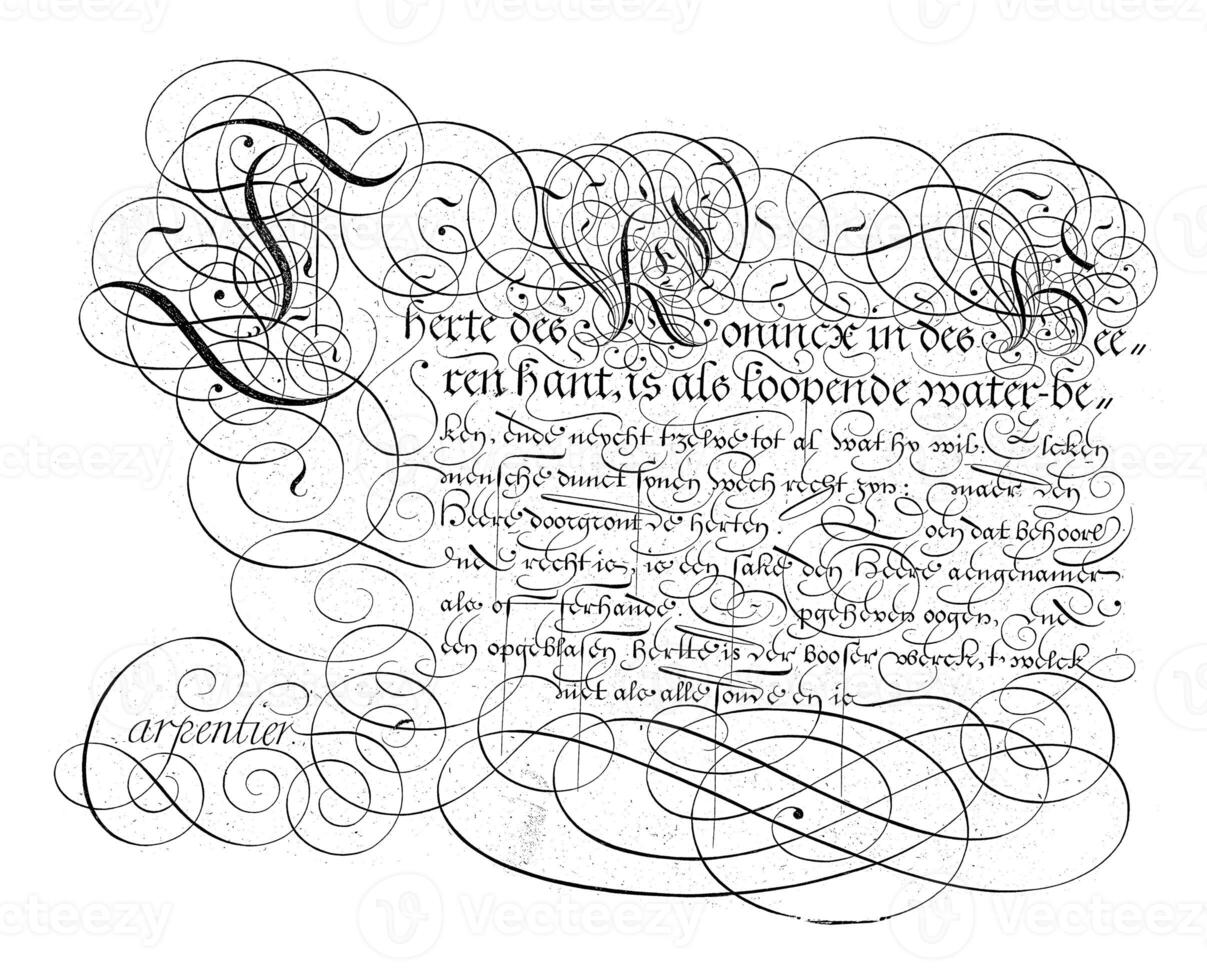 T herte des Konincx in des Hee〃
ren hant, is als loopende water-be〃
ken, ende neycht tzelve tot al wat hy wil. Elcken
mensche dunct synen wech recht zyn: maer den
Heere doorgront de herten. Doen dat behoorl
ende recht is, is een sake den Heere aengenamer
als offerhande. Opgeheven oogen, ende
een opgeblasen hertte is der booser werck, t welck
niet als alle sonde en is
Carpentier.
Vecteezy